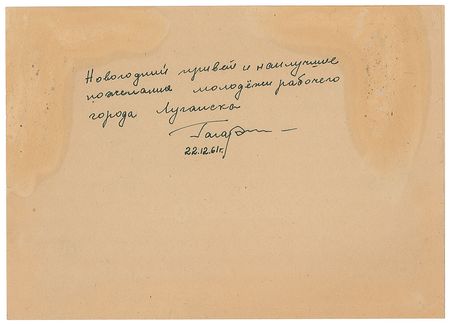 Новогодний привет и наилучшие
пожелания молодёжи рабочего
города Луганска
Гагарин
22.12.61г.